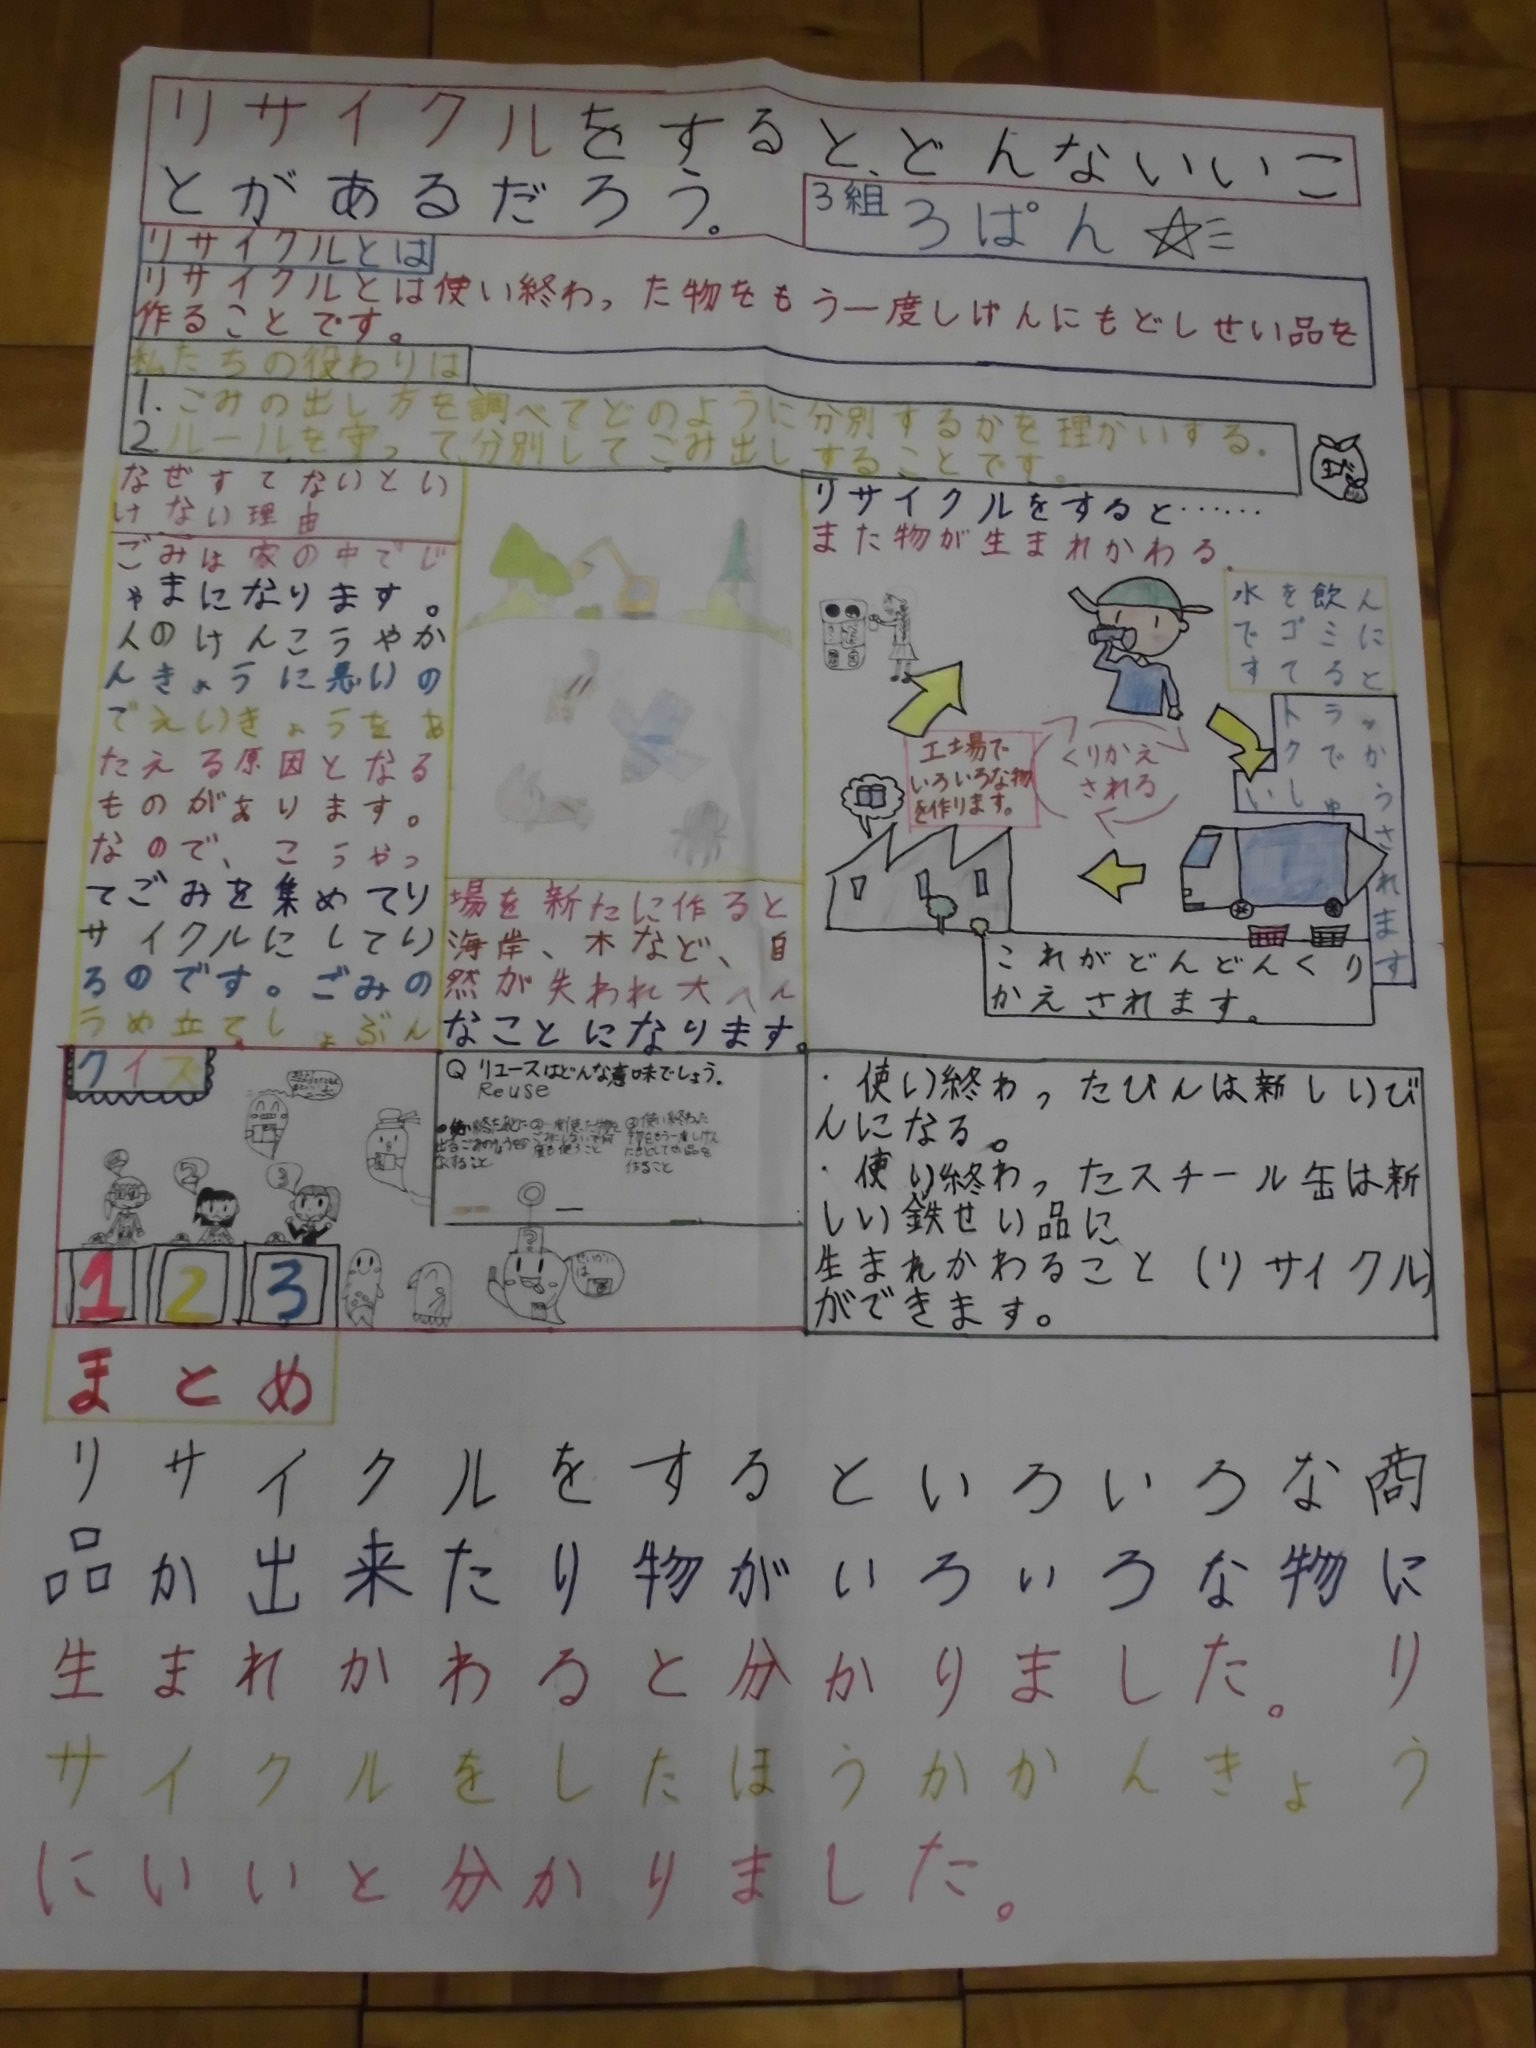 リサイクルをすると、どんないいこ
とがあるだろう。
3組 ろぱん
リサイクルとは
リサイクルとは使い終わった物をもう一度しげんにもどしせい品を
作ることです。
私たちの役わりは
1.ごみの出し方を調べてどのように分別するかを理かいする.
2.ルールを守って分別してごみ出しすることです。
なぜすてないとい
けない理由
ごみは家の中でじ
ゃまになります。
人のけんこうやか
んきょうに悪いの
でえいきょうをあ
たえる原因となる
ものがあります。
なので、こうやっ
てごみを集めてリ
サイクルにしてい
るのです。ごみの
うめ立てしょぶん
場を新たに作ると
海岸、木など、自
然が失われ大へん
なことになります。
リサイクルをすると……
また物が生まれかわる.
水を飲ん
でゴミに
すてると
トラッ
クでか
いしゅう
されます
これがどんどんくり
かえされます。
工場で
いろいろな物
を作ります。
くりかえ
される
クイズ
1
2
3
Q リユースはどんな意味でしょう。
Reuse
②一度使った物を
ごみにしないで何
度も使うこと
③使い終わった
物をもう一度しげん
にもどしてせい品を
作ること
せいかい
は
・使い終わったびんは新しいび
んになる。
・使い終わったスチール缶は新
しい鉄せい品に
生まれかわること(リサイクル)
ができます。
まとめ
リサイクルをするといろいろな商
品か出来たり物がいろいろな物に
生まれかわると分かりました。リ
サイクルをしたほうかかんきょう
にいいと分かりました。